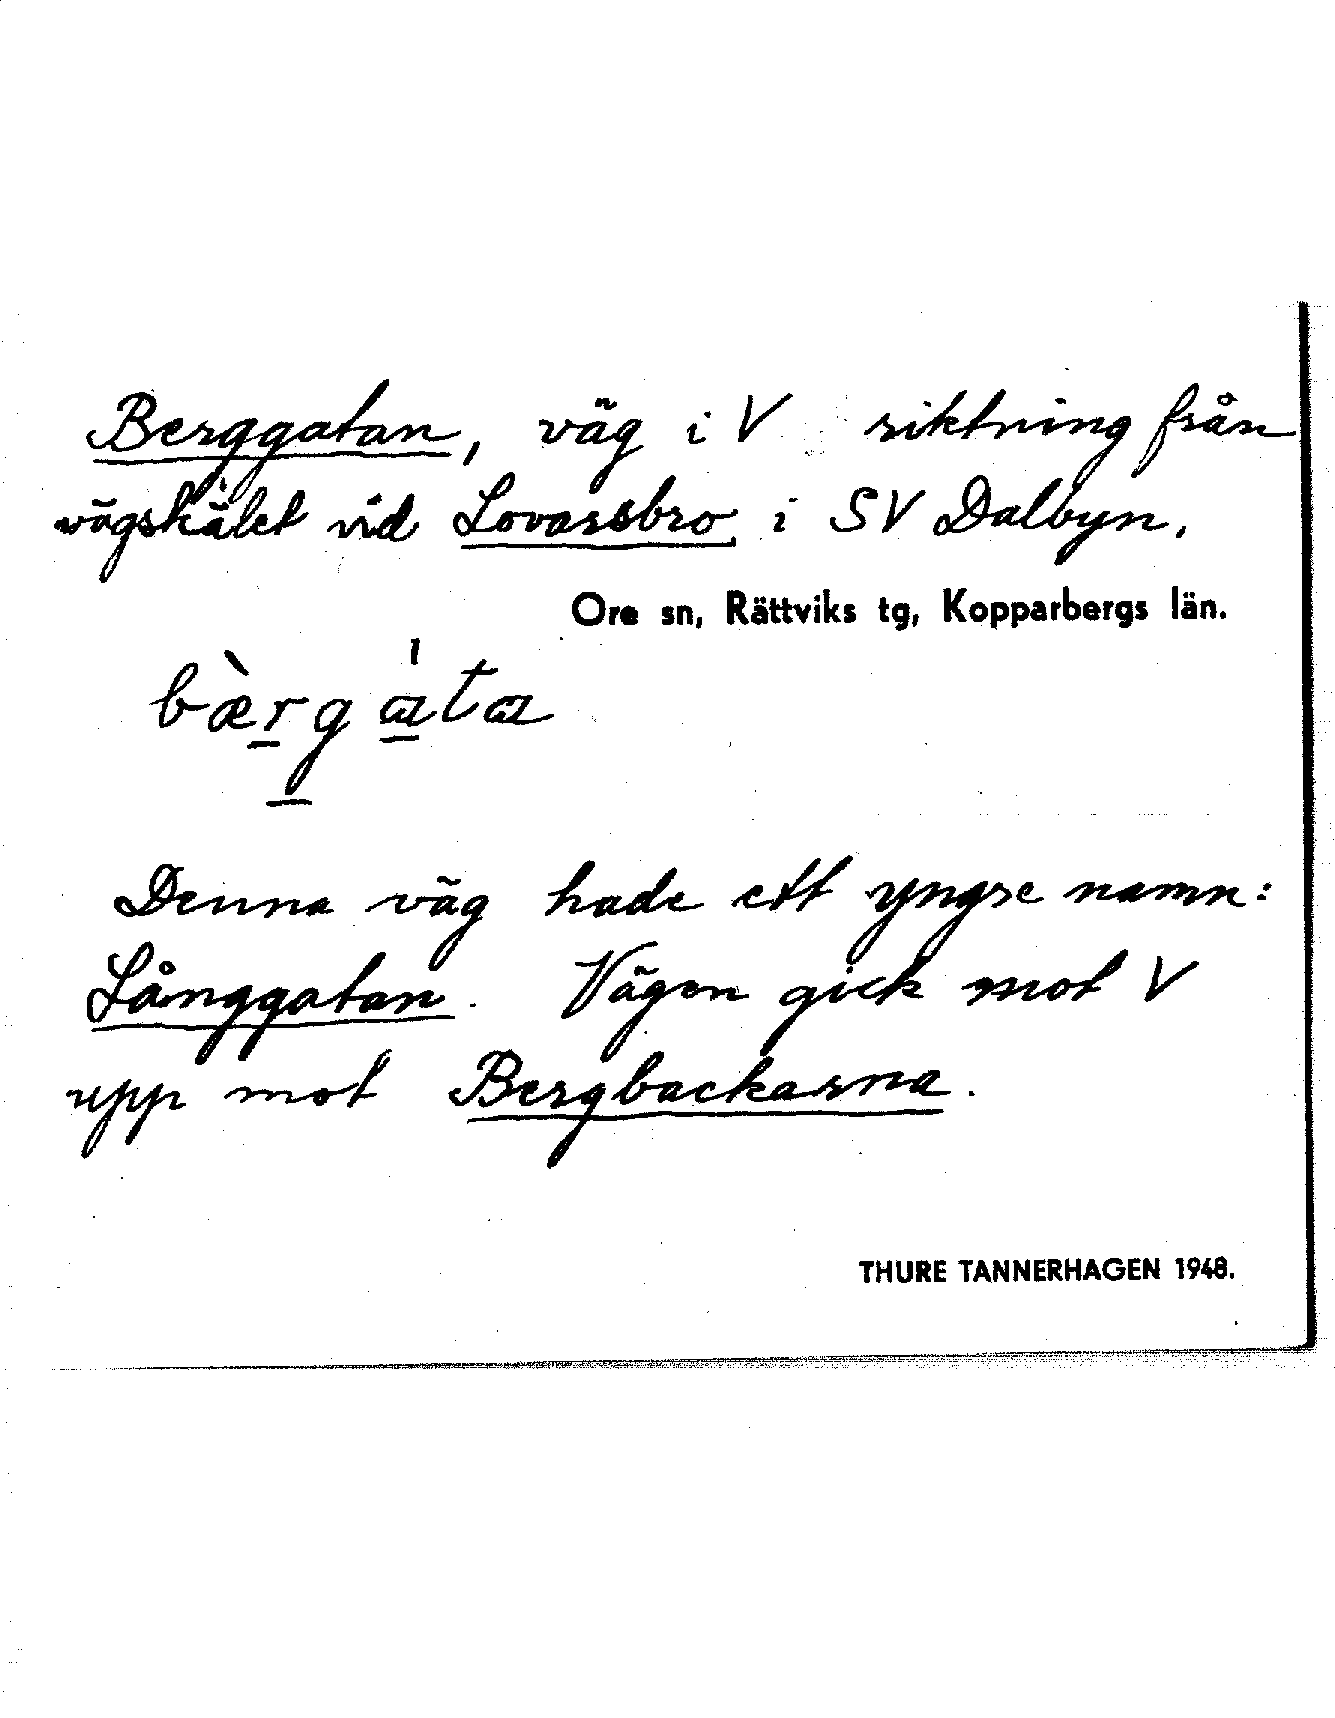 Berggatan, väg i V riktning från
vägskälet vid Lovarsbro i SV Dalbyn.
Ore sn, Rättviks tg, Kopparbergs län.
bæ̀rgata
Denna väg hade ett yngre namn:
Långgatan. Vägen gick mot V
upp mot Bergbackarna.
THURE TANNERHAGEN 1948.